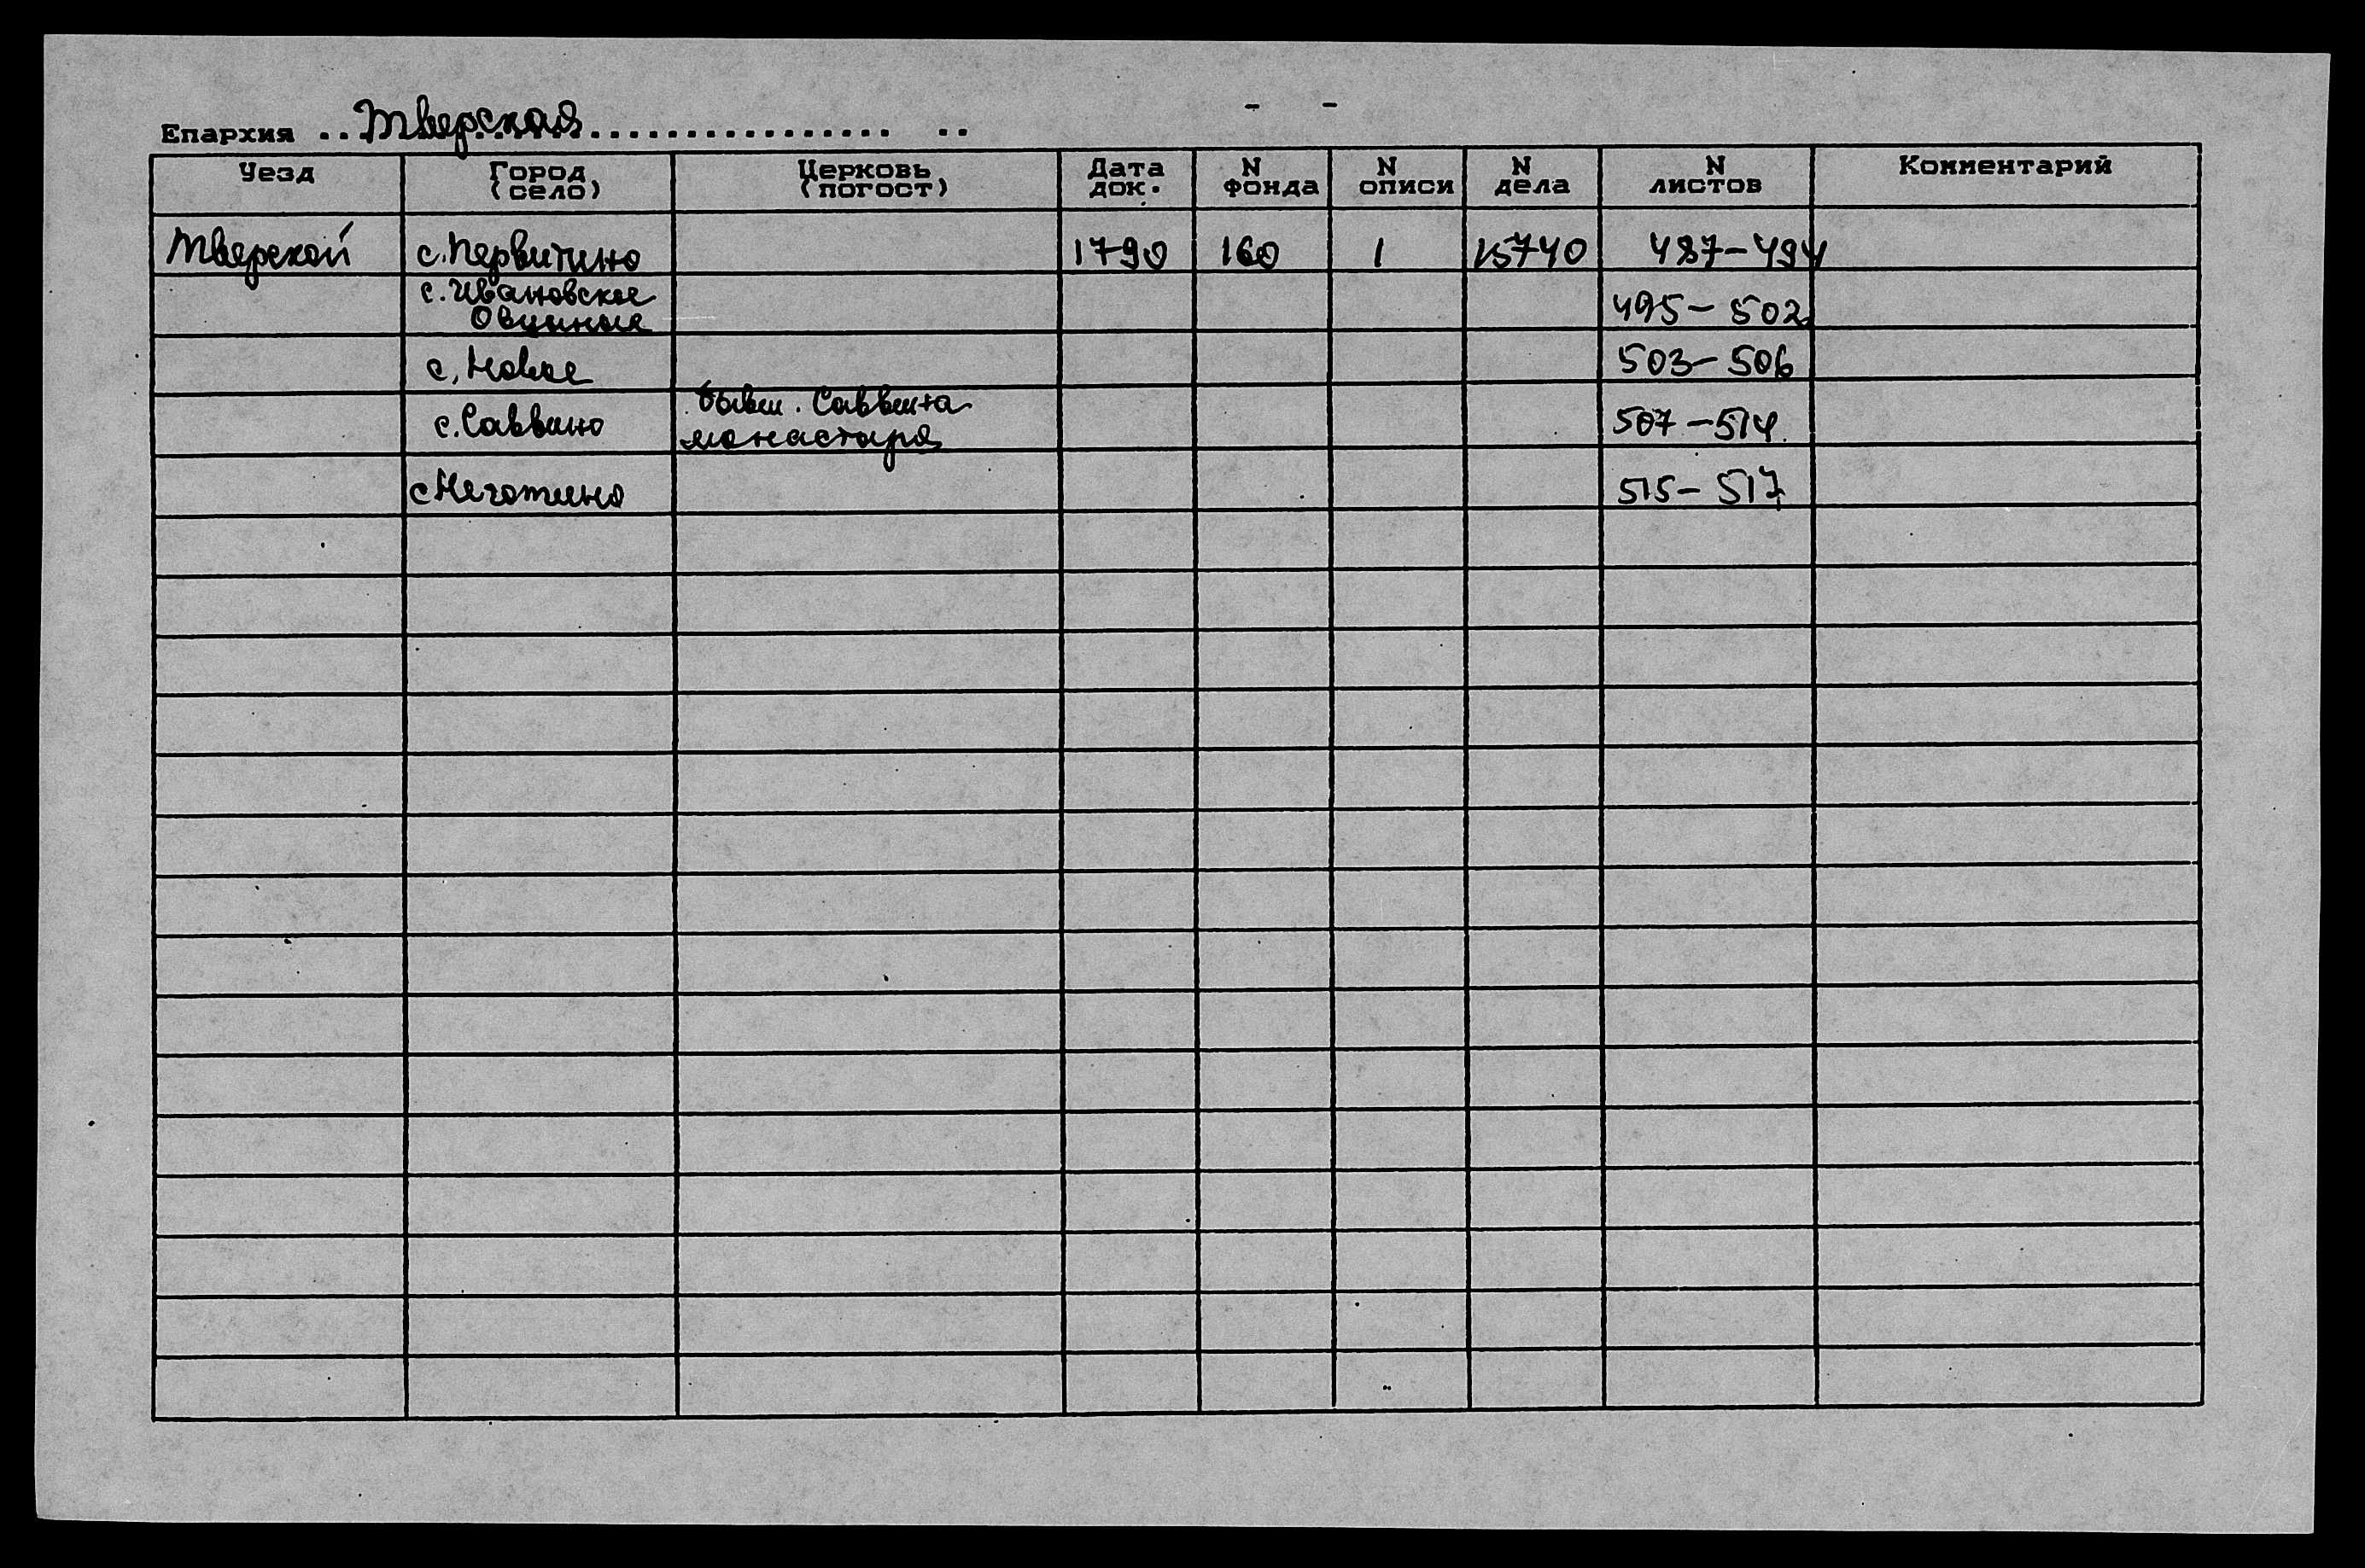 Епархия .. Тверская ................ ..
- -
Уезд | Город (село) | Церковь (погост) | Дата док. | N фонда | N описи | N дела | N листов | Комментарий
Тверской | с. Первитино | | 1790 | 160 | 1 | 15740 | 487-494
с. Ивановское | | | | | | 495-502
с. Новое | | | | | | 503-506
с. Саввино | бывш. Саввина монастыря | | | | | 507-514
с Неготино | | | | | | 515-517